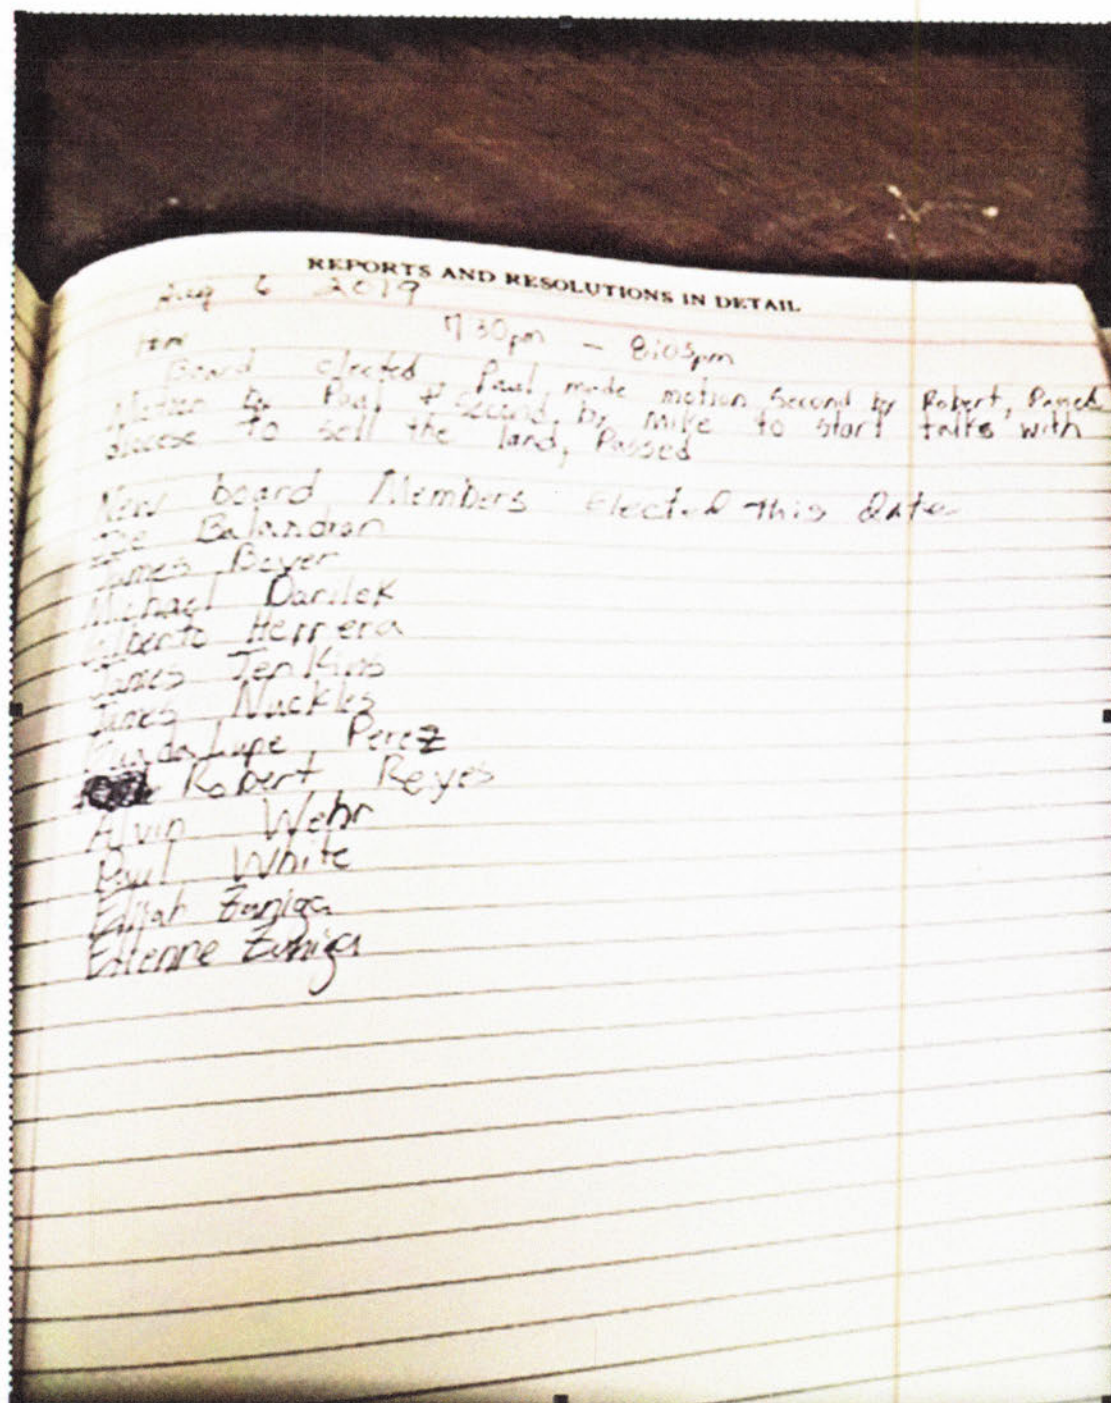 REPORTS AND RESOLUTIONS IN DETAIL
Aug 6 2019
7:30pm - 8:05pm
Board elected Paul made motion second by Robert, Passed
Motion by Paul & second by Mike to start talks with
diocese to sell the land, Passed
New board Members Elected this date
Balandran
James Boyer
Michael Darilek
Gilberto Herrera
James Jenkins
James Nuckles
Guadalupe Perez
Robert Reyes
Alvin Wehr
Paul White
Elijah Zuniga
Etienne Zuniga